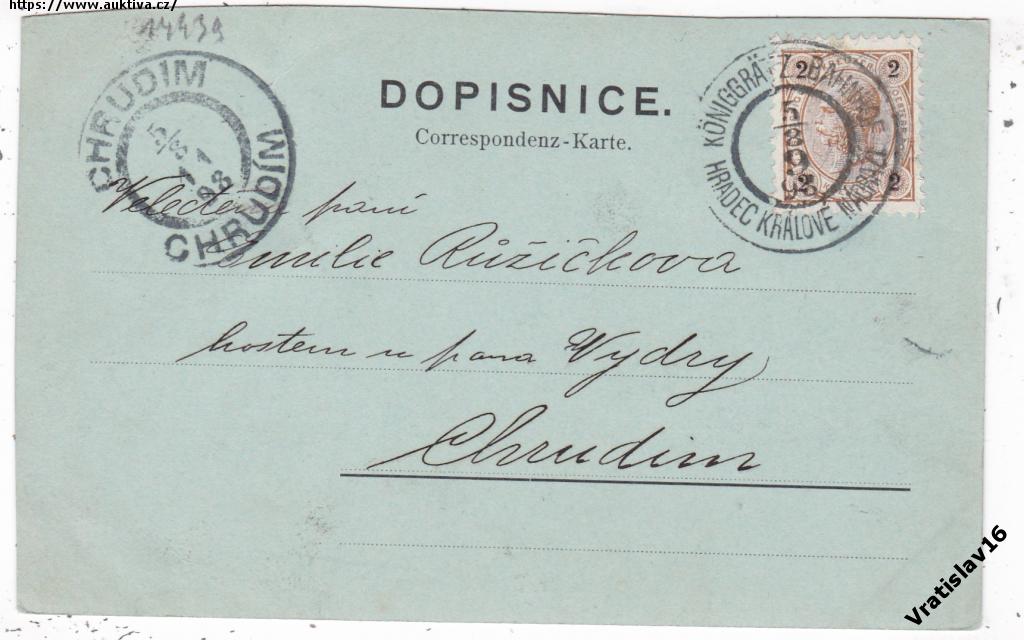 https://www.auktiva.cz/
14439
DOPISNICE.
Correspondenz-Karte.
CHRUDIM
5/8
98
CHRUDÍM
KÖNIGGRÄTZ BAHNHOF
5
8
9
98
HRADEC KRÁLOVÉ NÁDRAŽÍ
2 2
2 2
paní
Emilie Růžičkova
hostem u pana Vydry
Chrudim
Vratislav16